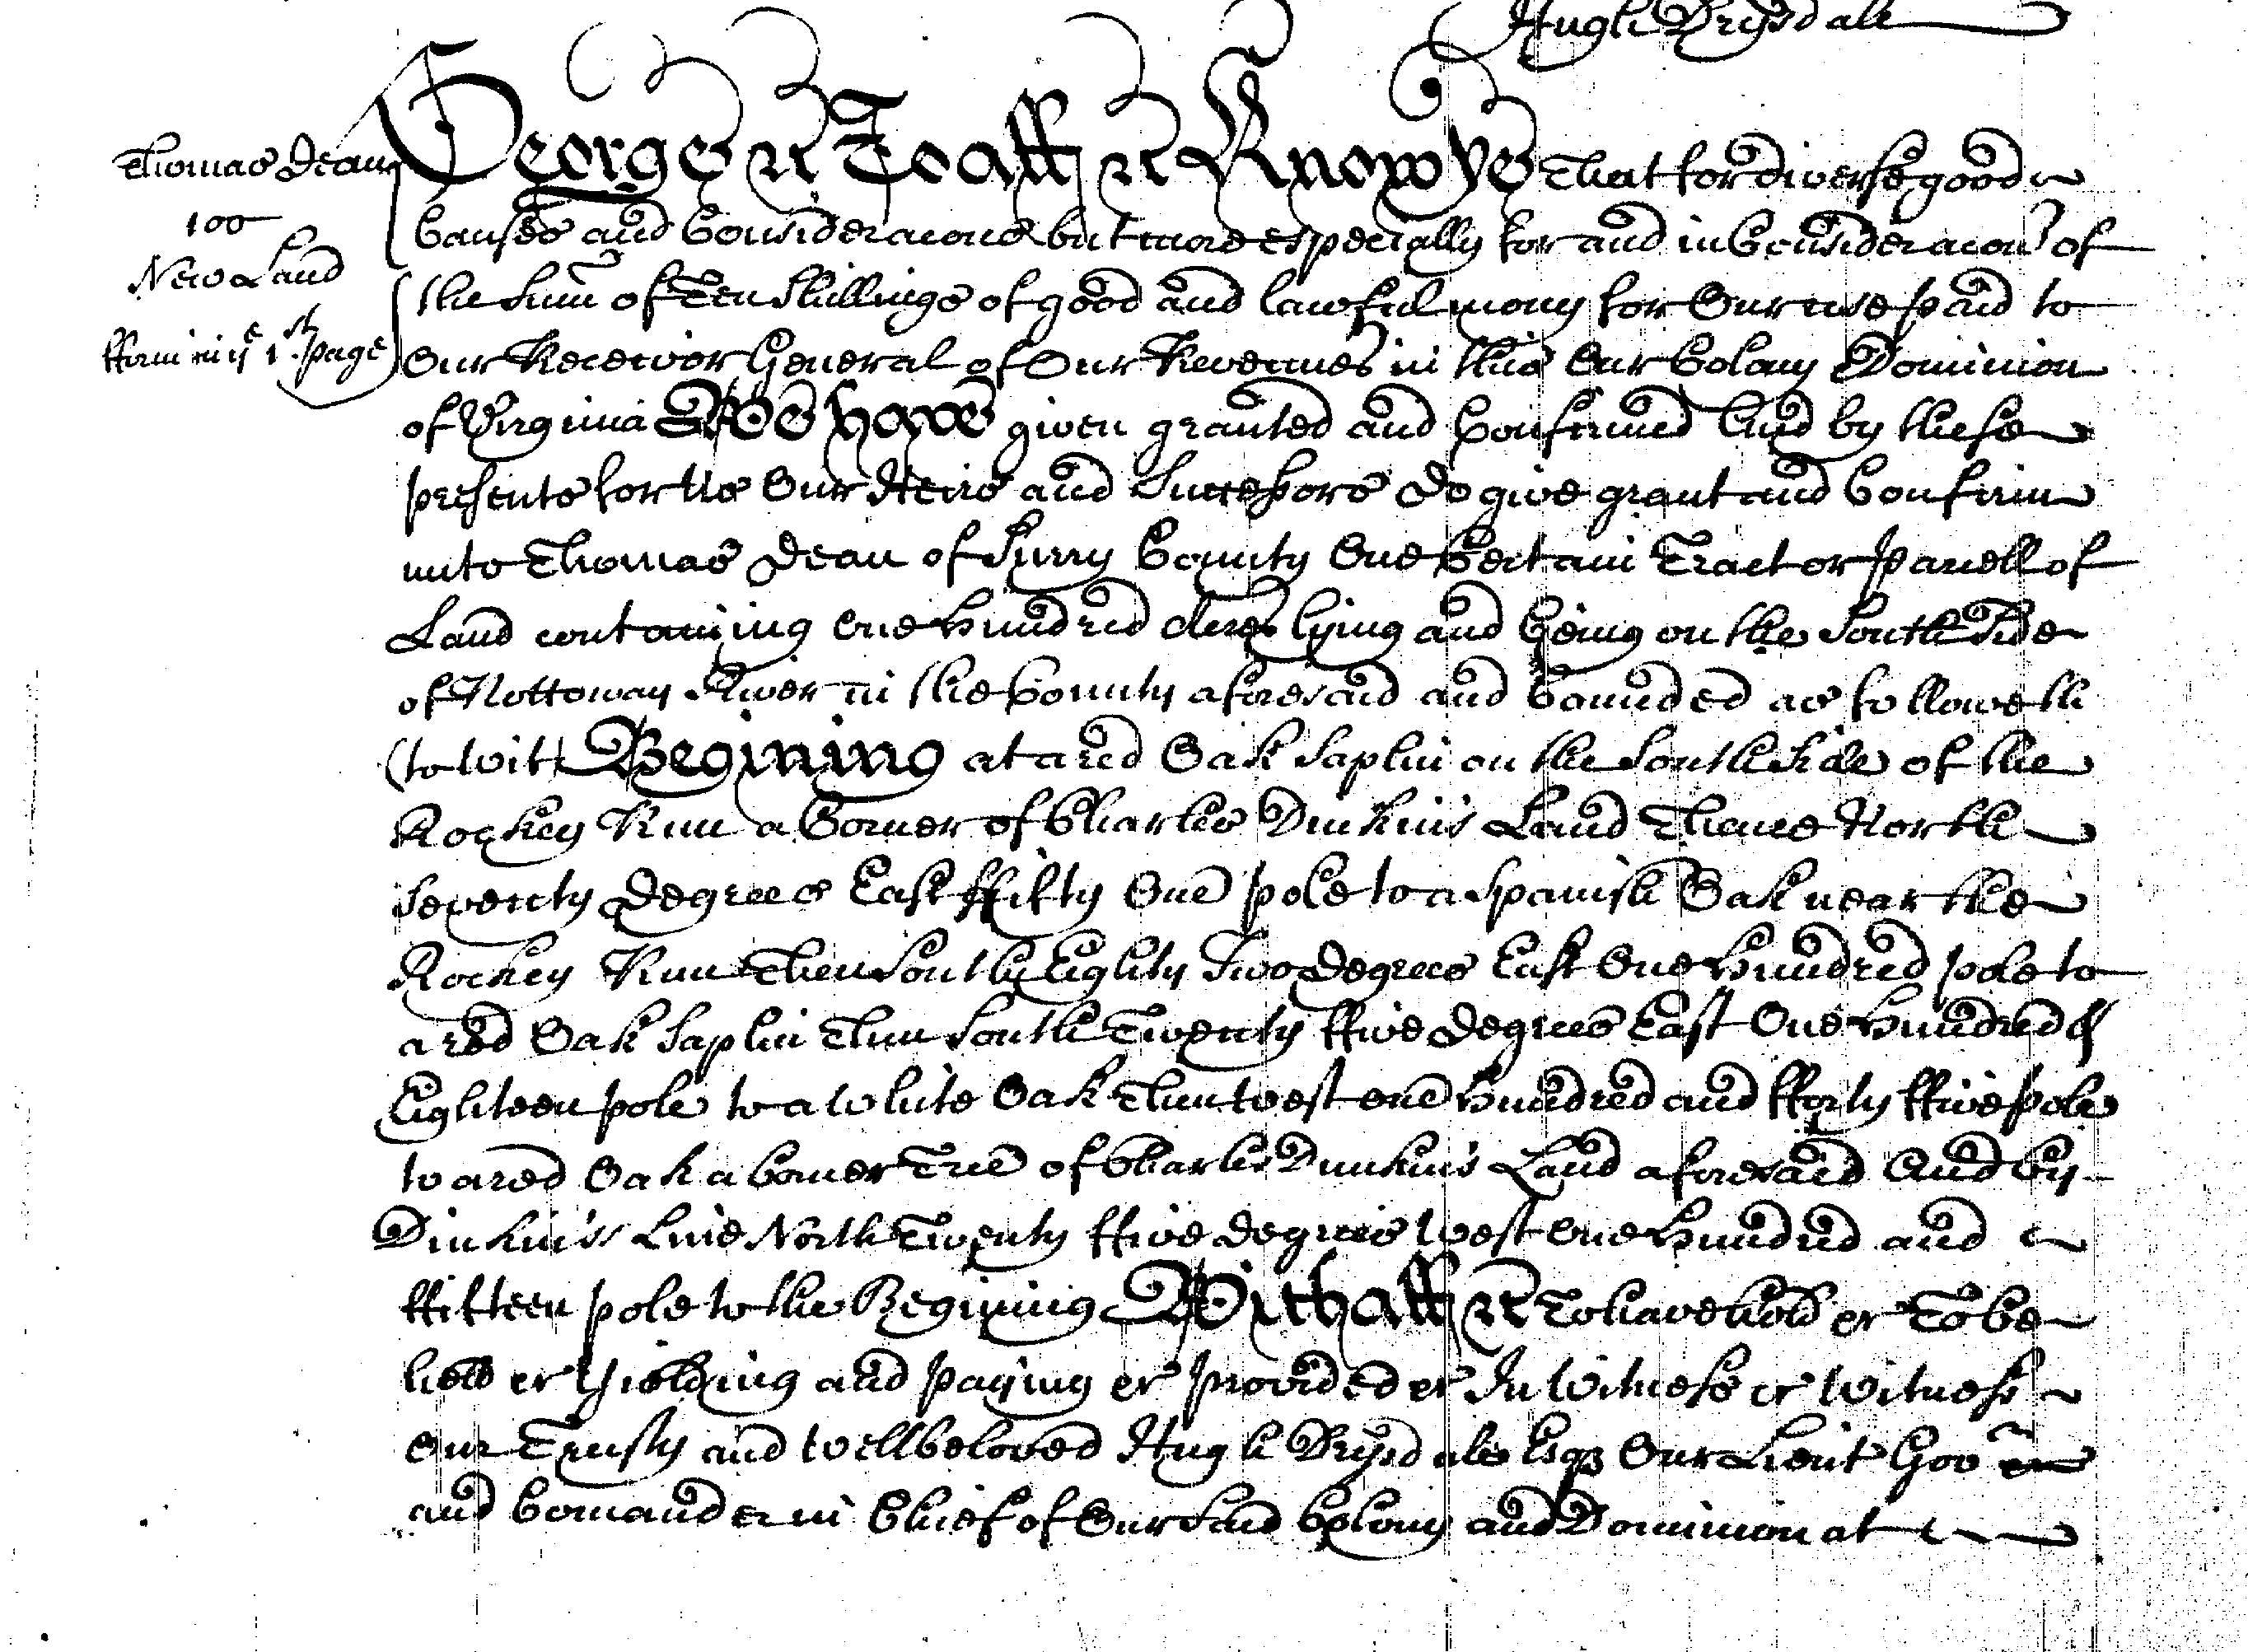 Hugh Drysdale
George &c To all &c Know ye That for diverse good
Thomas Dean
100
New Land
fform in ye 1st page
Causes and Consideracons but more especially for and in Consideracon of
the Sum of Ten Shillings of good and lawful mony for Our use paid to
Our Receivor General of Our Revenues in this Our Colony Dominion
of Virginia We have given granted and Confirmed And by these
presents for Us Our Heirs and Successors Do give grant and Confirm
unto Thomas Dean of Surry County One Certain Tract or parcell of
Land containing One hundred Acres lying and being on the South Side
of Nottoway River in the County aforesaid and bounded as followeth
(to wit) Begining at a red Oak Saplin on the South Side of the
Rockey Run a Corner of Charles Dunkin's Land Thence North
Seventy Degrees East ffifty One pole to a Spanish Oak near the
Rockey Run Then South Eighty Two Degrees East One hundred pole to
a red Oak Saplin Then South Twenty ffive Degrees East One Hundred &
Eighteen pole to a white Oak Then west One hundred and fforty ffive pole
to a red Oak a Corner Tree of Charles Dunkin's Land aforesaid And by
Dinkin's Line North Twenty ffive Degrees West One Hundred and
ffifteen pole to the Begining With all &c To have hold &c To be
held &c Yielding and paying &c provided &c In Witness &c Witness
Our Trusty and Wellbeloved Hugh Drysdale Esqr Our Lieut Gov
and Comander in Chief of Our Said Colony and Dominion at